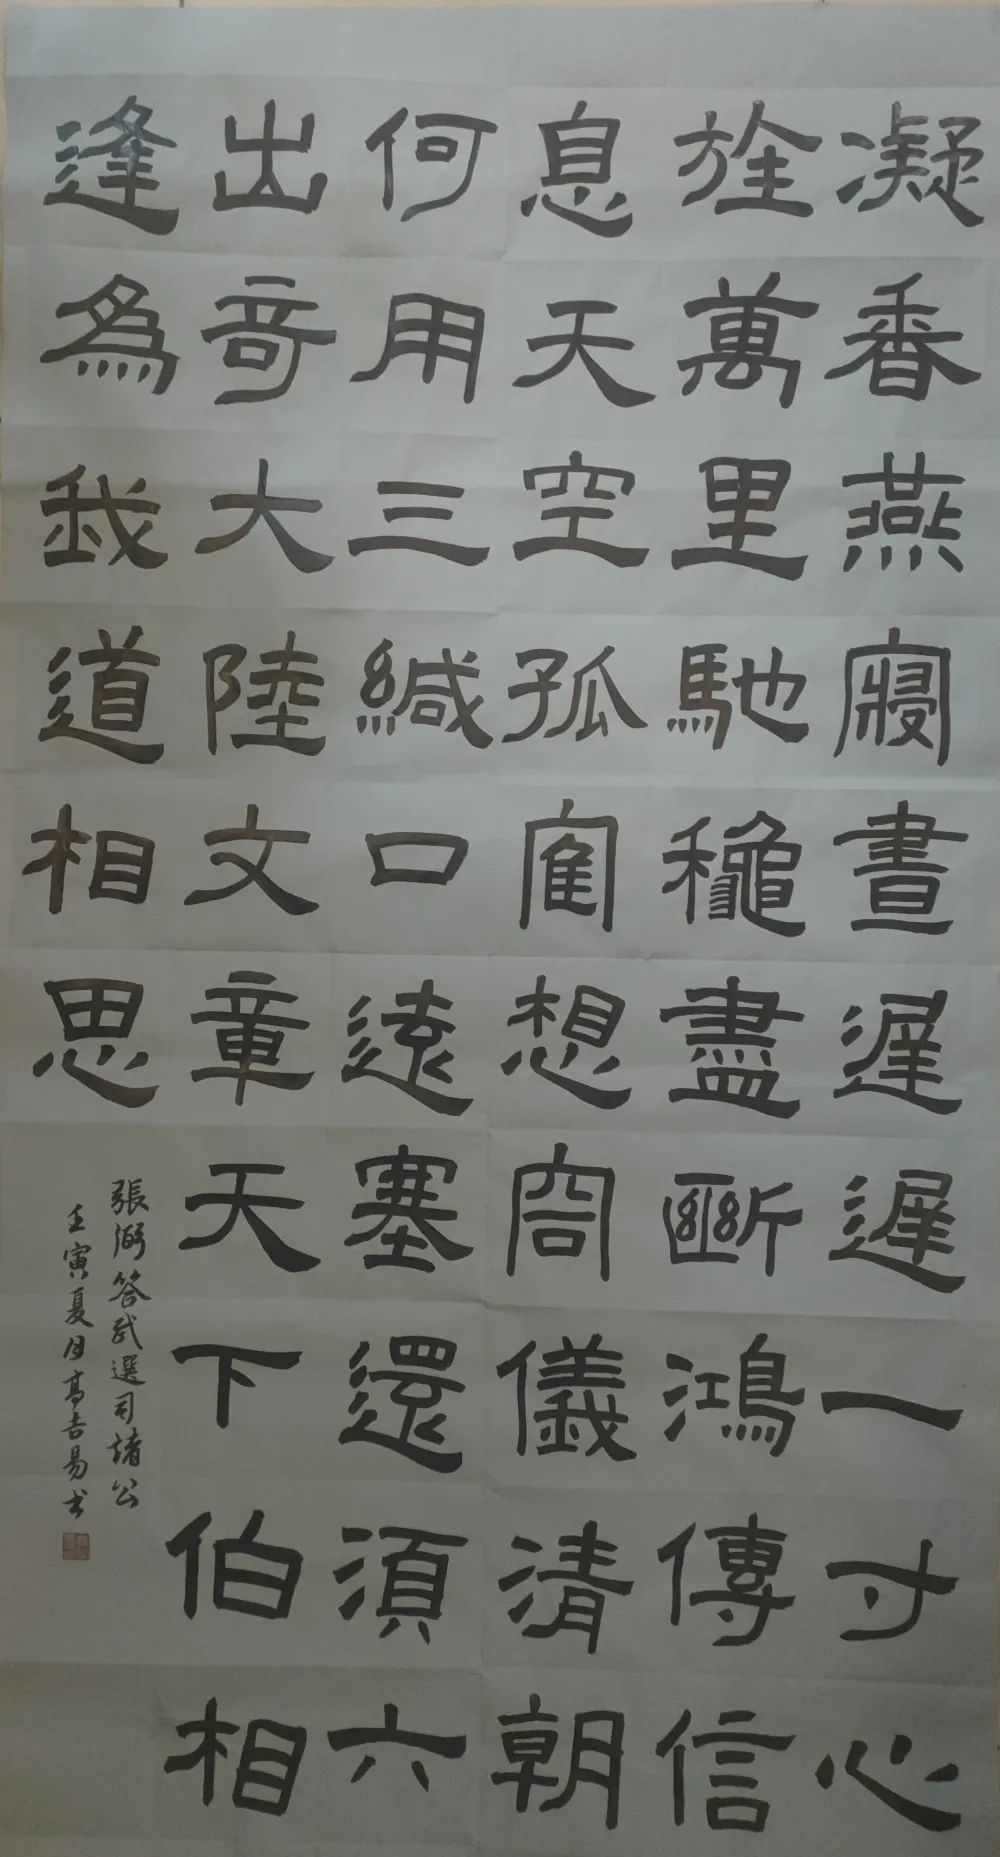 凝香燕寢晝遲遲一寸心
旌萬里馳龝盡斷鴻傳信
息天空孤寉想容儀清朝
何用三緘口遠塞還須六
出奇大陸文章天下伯相
逢為我道相思
張弼答武選司諸公
壬寅夏月高吉易书